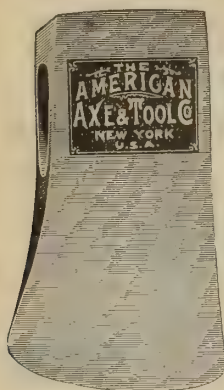 THE
AMERICAN
AXE & TOOL Co
NEW YORK
U.S.A.